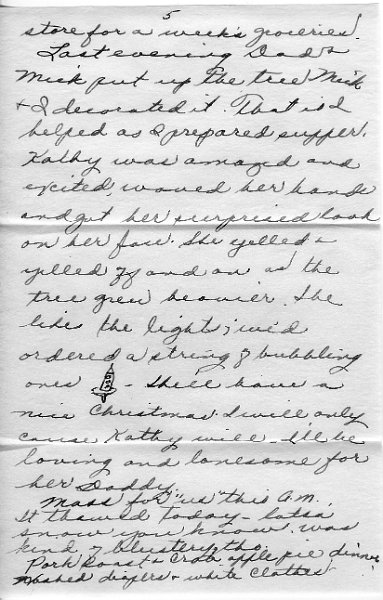 5
store for a week's groceries.
Last evening Dad &
Mick put up the tree Mick
& I decorated it. That is I
helped as I prepared supper.
Kathy was amazed and
excited, waved her hands
and got her surprised look
on her face. She yelled &
yelled off and on as the
tree grew heavier. She
likes the lights; we'd
ordered a string of bubbling
ones - She'll have a
nice Christmas. I will only
cause Kathy will - I'll be
loving and lonesome for
her Daddy.
Mass for "us" this A.M.
It thawed today - lotsa
snow you know. was
kind of blustery, tho.
Pork Roast & Crab apple pie dinner
washed diapers & white clothes